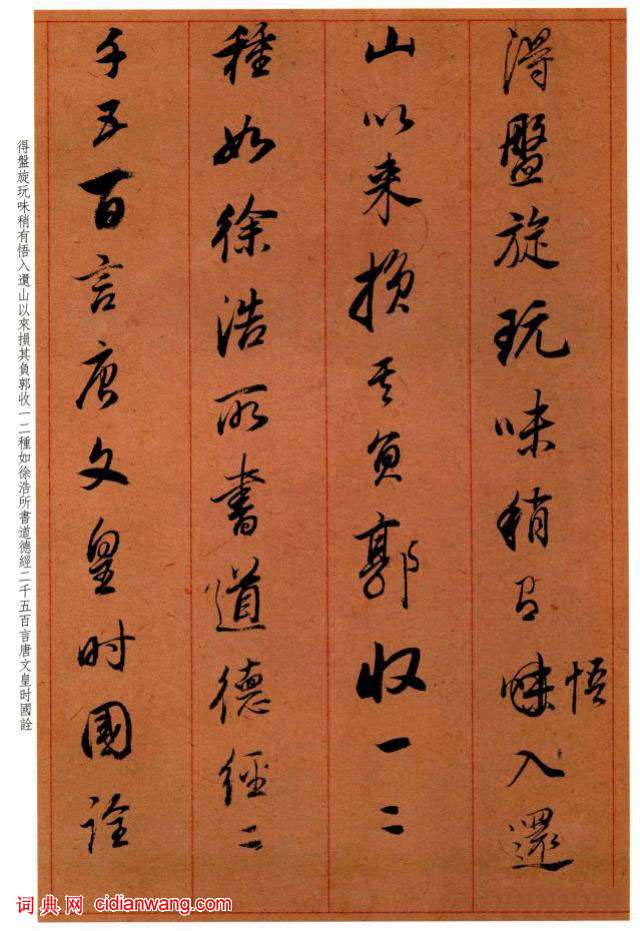 得盤旋玩味稍有味悟入還
山以来損其負郭收一二
種如徐浩所書道德經二
千五百言唐文皇时國詮
得盤旋玩味稍有悟入還山以來損其負郭收一二種如徐浩所書道德經二千五百言唐文皇时國詮
词典网 cidianwang.com